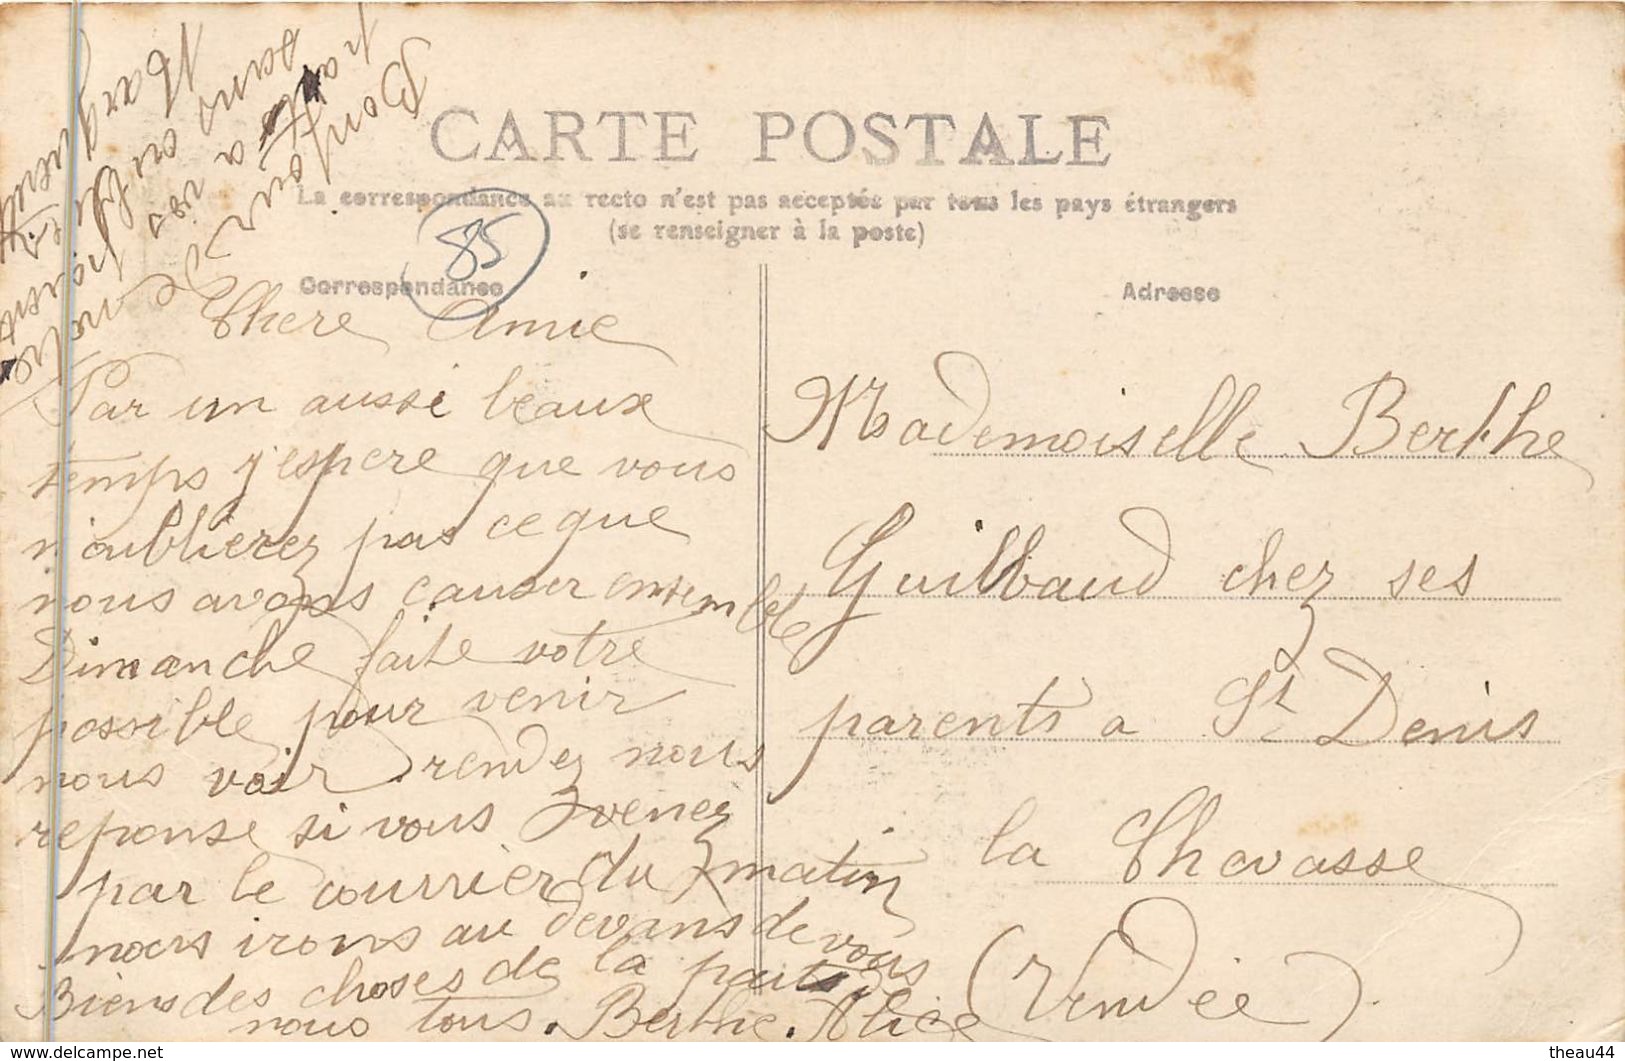 CARTE POSTALE
La correspondance au recto n'est pas acceptée par tous les pays étrangers
(se renseigner à la poste)
85
Correspondance
Adresse
Chere Amie
Par un aussi beaux
temps j'espere que vous
n'oublierez pas ce que
nous avons causer ensemble
Dimanche faite votre
possible pour venir
nous voir rendez nous
reponse si vous venez
par le courrier du matin
nous irons au devans de vous
Biens des choses de la part
nous tous. Berthe. Alice
Bonjour de notre
part a vos
sans oublie
Marguerite
Mademoiselle Berthe
Guilbaud chez ses
parents a St Denis
la Chevasse
(Vendée)
theau44